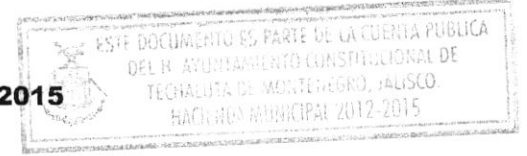 ESTE DOCUMENTO ES PARTE DE LA CUENTA PUBLICA
DEL H. AYUNTAMIENTO CONSTITUCIONAL DE
TECHALUTA DE MONTENEGRO, JALISCO.
HACIENDA MUNICIPAL 2012-2015
2015